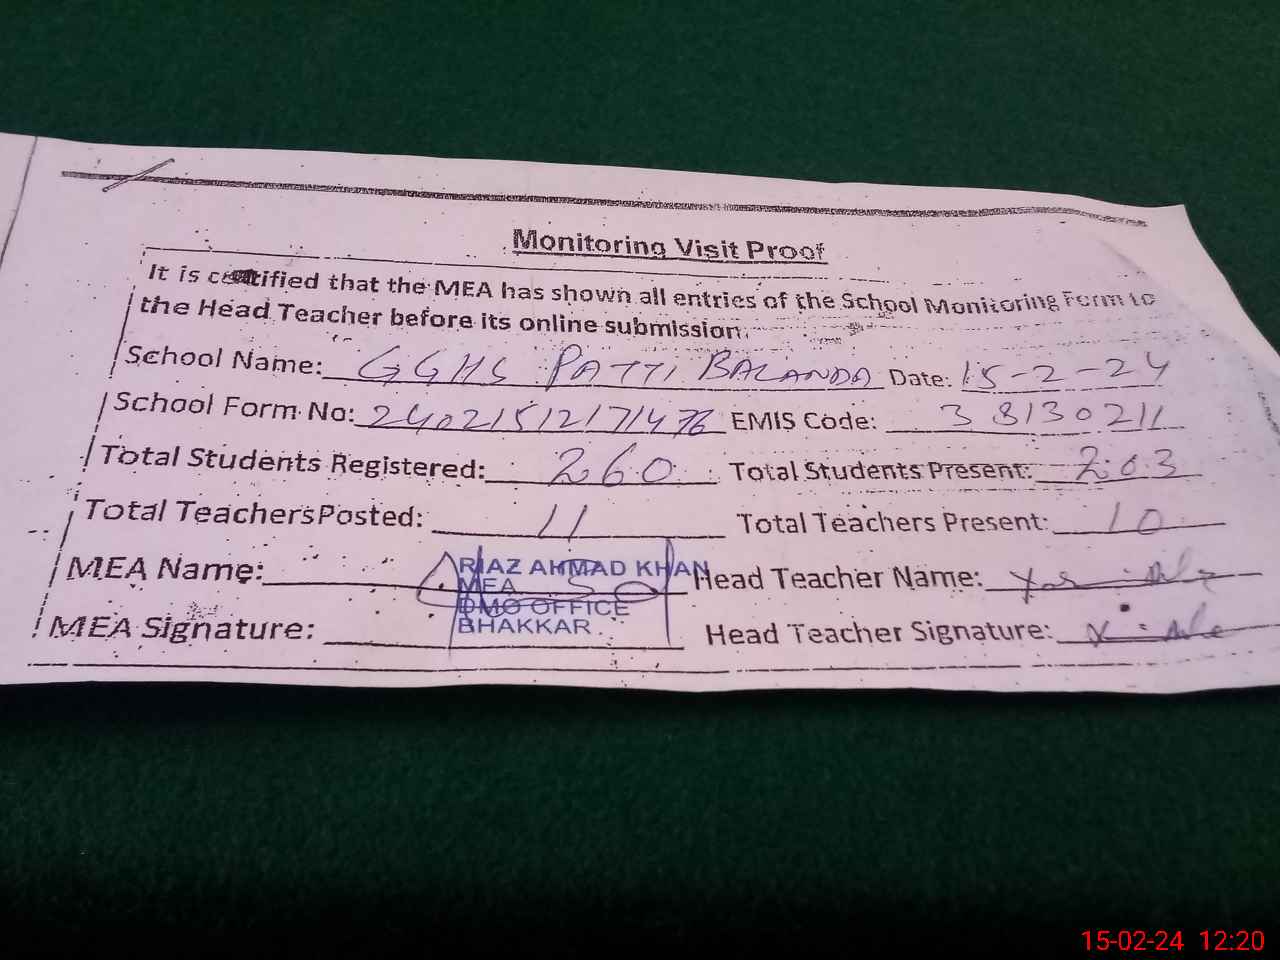 Monitoring Visit Proof
It is certified that the MEA has shown all entries of the School Monitoring Form to
the Head Teacher before its online submission.
School Name: GGHS PATTI BALANDA Date: 15-2-24
School Form No: 24021512171476 EMIS Code: 38130211
Total Students Registered: 260 Total Students Present: 203
Total Teachers Posted: 11 Total Teachers Present: 10
MEA Name: RIAZ AHMAD KHAN Head Teacher Name:
MEA
DMO OFFICE
MEA Signature: BHAKKAR Head Teacher Signature:
15-02-24 12:20